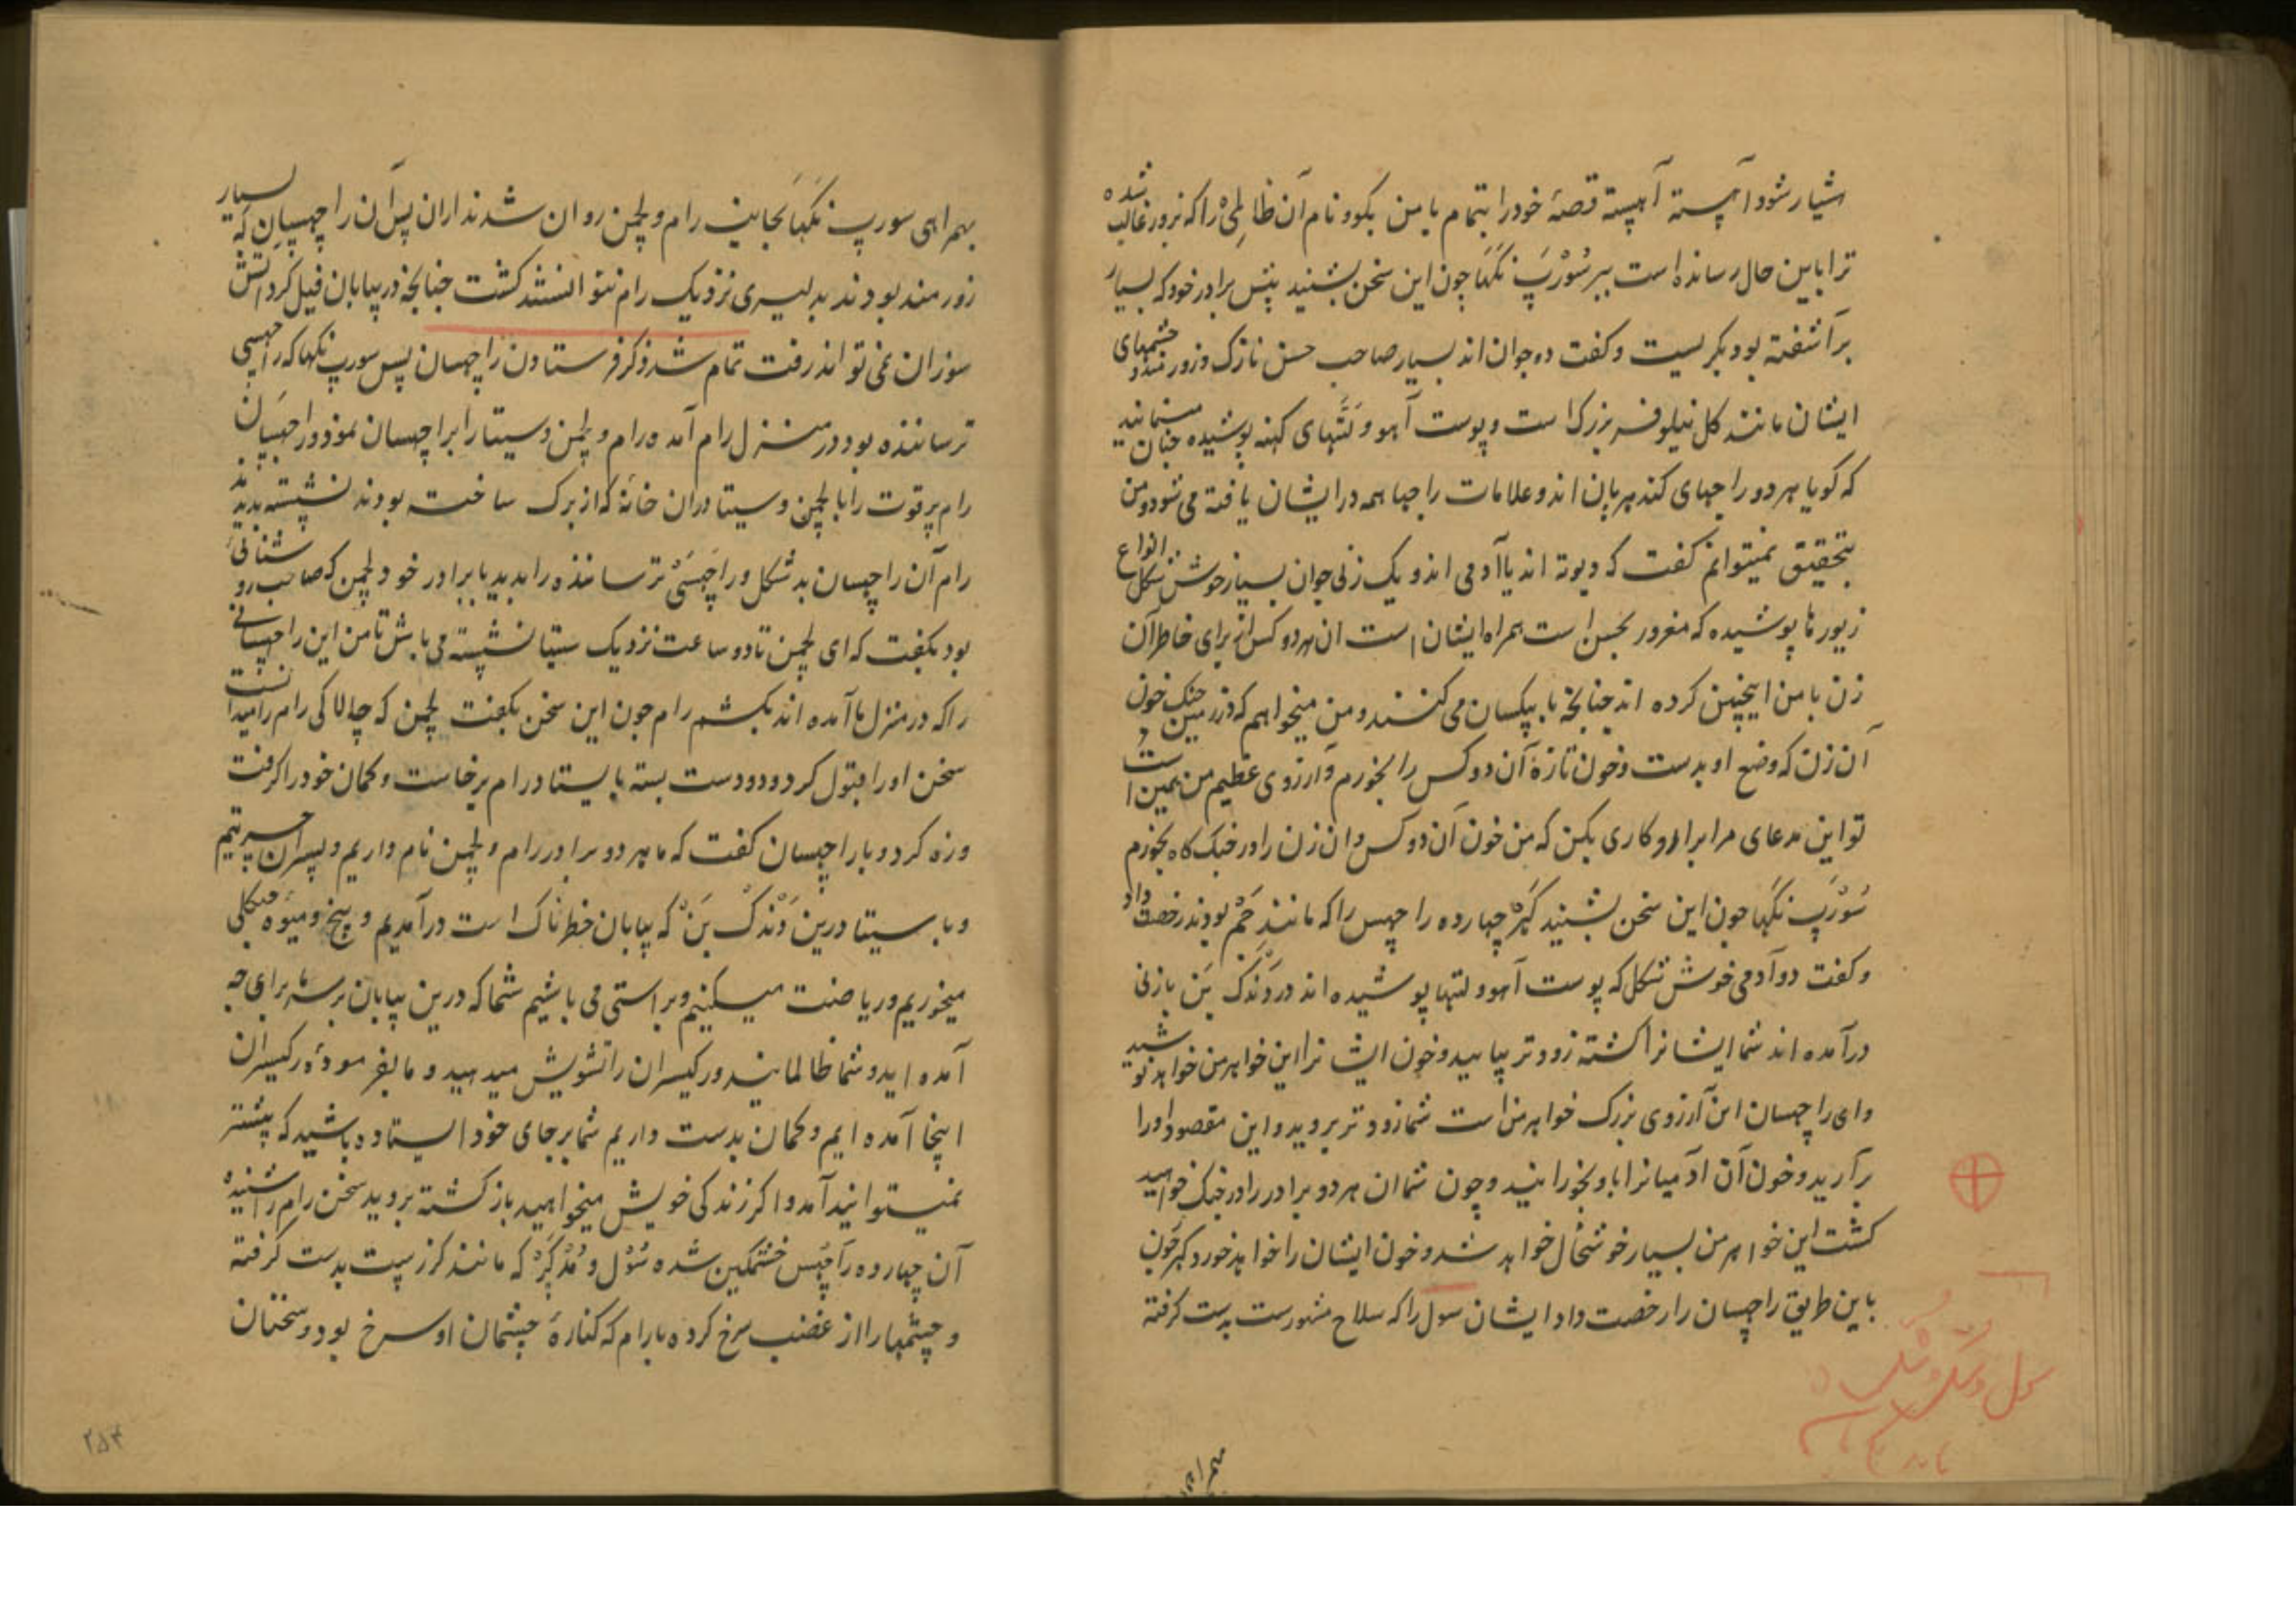 شیار شو و آهسته آهسته قصهٔ خود را بتمام با من بگو و نام آن ظالمی را که بزور غالب شده
ترا باین حال رسانده است ببر سُورْپَ نَکَها چون این سخن بشنید پیش برادر خود که بسیار
برآشفته بود بگریست و گفت دو جوان اند بسیار صاحب حسن نازک و زورمند و چشمهای
ایشان مانند گل نیلوفر بزرگ است و پوست آهو و لَتَّهای کهنه پوشیده چنان مینمایند
که گویا هر دو راجهای گندهرپان اند و علامات راجها همه در ایشان یافته می شود و من
بتحقیق نمیتوانم گفت که دیوته اند یا آدمی اند و یک زنی جوان بسیار خوش شکل انواع
زیورها پوشیده که مغرور بحسن است همراه ایشان است آن هر دو کس از برای خاطر آن
زن با من اینچنین کرده اند چنانچه با بیکسان می کنند و من میخواهم که در زمین جنگ خون
آن زن که وضع او بدست و خون تازهٔ آن دو کس را بخورم و آرزوی عظیم من همین است
تو این مدعای مرا برآر و کاری بکن که من خون آن دو کس و آن زن را در جنگ گاه بخورم
سُورْپَ نَکَها چون این سخن بشنید کَهَر چهارده راچهس را که مانند جَمْ بودند رخصت داد
و گفت دو آدمی خوش شکل که پوست آهو و لتها پوشیده اند در دَنْدَکْ بَن با زنی
درآمده اند شما ایشانرا کشته زودتر بیایید و خون ایشانرا این خواهر من خواهد نوشید
و ای راچهسان این آرزوی بزرگ خواهر من است شما زودتر بروید و این مقصود او را
برآرید و خون آن آدمیانرا باو بخورانید و چون شما آن هر دو برادر را در جنگ خواهید
کشت این خواهر من بسیار خوشحال خواهد شد و خون ایشان را خواهد خورد کهر چون
باین طریق راچهسان را رخصت داد ایشان سول را که سلاح مشهورست بدست گرفته
همراهی
بهمراهی سورپ نَکَها بجانب رام و لچمن روان شدند اران پس آن راچهسان که بسیار
زورمند بودند بدلیری نزدیک رام نتوانستند گشت چنانچه در بیابان فیل گرد آتش
سوزان نمی تواند رفت تمام شد ذکر فرستادن راچهسان پس سورپ نکها که راچهسی
ترساننده بود در منزل رام آمده رام و لچمن و سیتا را براچهسان نمود و راچهسان
رام پر قوت را با لچمن و سیتا دران خانهٔ که از برگ ساخته بودند نشسته بدیدند
رام آن راچهسان بد شکل و راچَهسَیْ ترساننده را بدید با برادر خود لچمن که صاحب روشنائی
بود بگفت که ای لچمن تا دو ساعت نزدیک سیتا نشسته می باش تا من این راچهسانی
را که در منزل ما آمده اند بکشم رام چون این سخن بگفت لچمن که چالاکی رام را میدانست
سخن او را قبول کرد و دو دست بسته بایستاد رام برخاست و کمان خود را گرفت
و زه کرد و با راچهسان گفت که ما هر دو برادر رام و لچمن نام داریم و پسران جسرتیم
و با سیتا درین دَنْدَکْ بَنْ که بیابان خطرناک است درآمدیم و بیخ و میوهٔ جنگلی
میخوریم و ریاضت میکنیم و براستی می باشیم شما که درین بیابان برسر ما برای چه
آمده اید و شما ظالمانید و رکیسران را تشویش میدهید و ما بفرمودهٔ رکیسران
اینجا آمده ایم و کمان بدست داریم شما بر جای خود ایستاده باشید که پیشتر
نمیتوانید آمد و اگر زندگی خویش میخواهید بازگشته بروید سخن رام را شنیده
آن چهارده راچَهس خشمگین شده سُوْل و مُدْگَرْ که مانند گرز سپت بدست گرفته
و چشمها را از غضب سرخ کرده با رام که کنارهٔ چشمان او سرخ بود و سخنان
۲۵۴